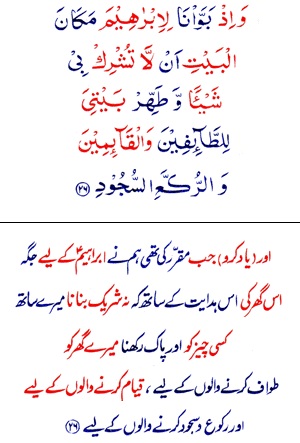 وَاِذْ بَوَّاْنَا لِاِبْرٰهِيْمَ مَكَانَ
الْبَيْتِ اَنْ لَّا تُشْرِكْ بِيْ
شَيْـًٔا وَّ طَهِّرْ بَيْتِيَ
لِلطَّآىِٕفِيْنَ وَالْقَآىِٕمِيْنَ
وَ الرُّكَّعِ السُّجُوْدِ ﴿۲۶﴾
اور (یاد کرو) جب مقرّر کی تھی ہم نے ابراہیمؑ کے لیے جگہ
اس گھر کی اس ہدایت کے ساتھ کہ نہ شریک بنانا میرے ساتھ
کسی چیز کو اور پاک رکھنا میرے گھر کو
طواف کرنے والوں کے لیے ، قیام کرنے والوں کے لیے
اور رکوع و سجود کرنے والوں کے لیے ﴿۲۶﴾